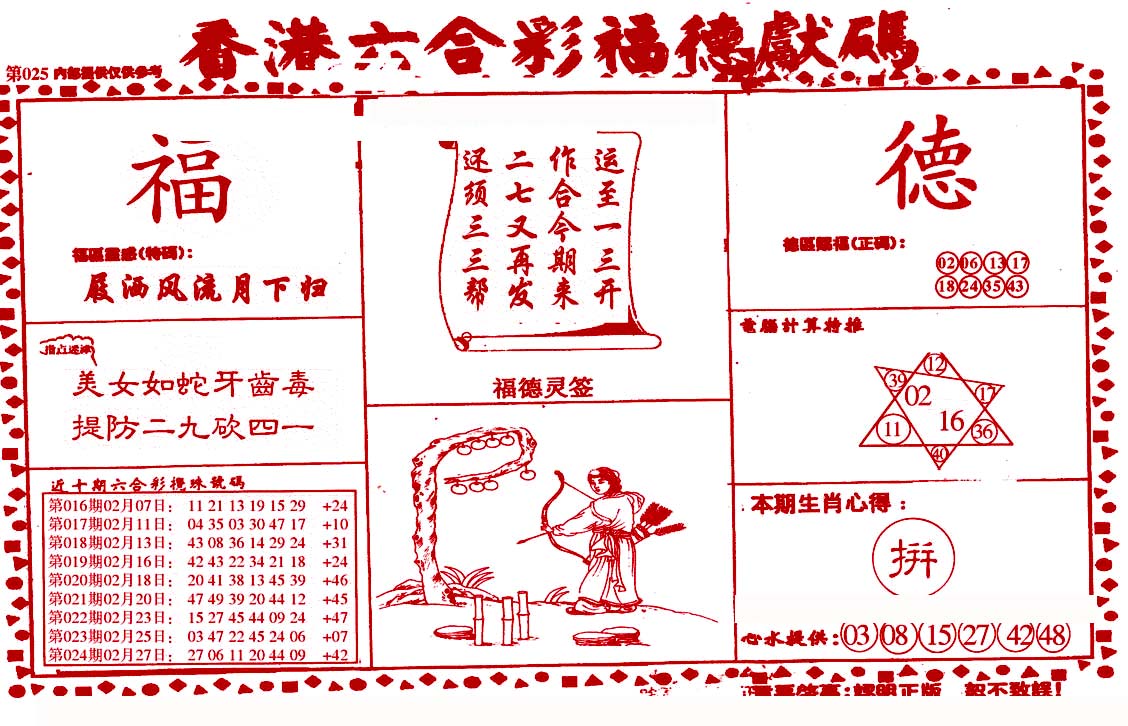 香港六合彩福德獻碼
第025 内部提供仅供参考
福
福區靈感(特碼):
屐洒风流月下归
指点迷津
美女如蛇牙齒毒
提防二九砍四一
近十期六合彩攪珠號碼
第016期02月07日: 11 21 13 19 15 29 +24
第017期02月11日: 04 35 03 30 47 17 +10
第018期02月13日: 43 08 36 14 29 24 +31
第019期02月16日: 42 43 22 34 21 18 +24
第020期02月18日: 20 41 38 13 45 39 +46
第021期02月20日: 47 49 39 20 44 12 +45
第022期02月23日: 15 27 45 44 09 24 +47
第023期02月25日: 03 47 22 45 24 06 +07
第024期02月27日: 27 06 11 20 44 09 +42
运至一三开
作合今期来
二七又再发
还须三三帮
福德灵签
德
德區賜福(正碼):
02 06 13 17
18 24 35 43
電腦計算特推
12
39 17
02
16
11 36
40
本期生肖心得:
拼
心水提供:03 08 15 27 42 48